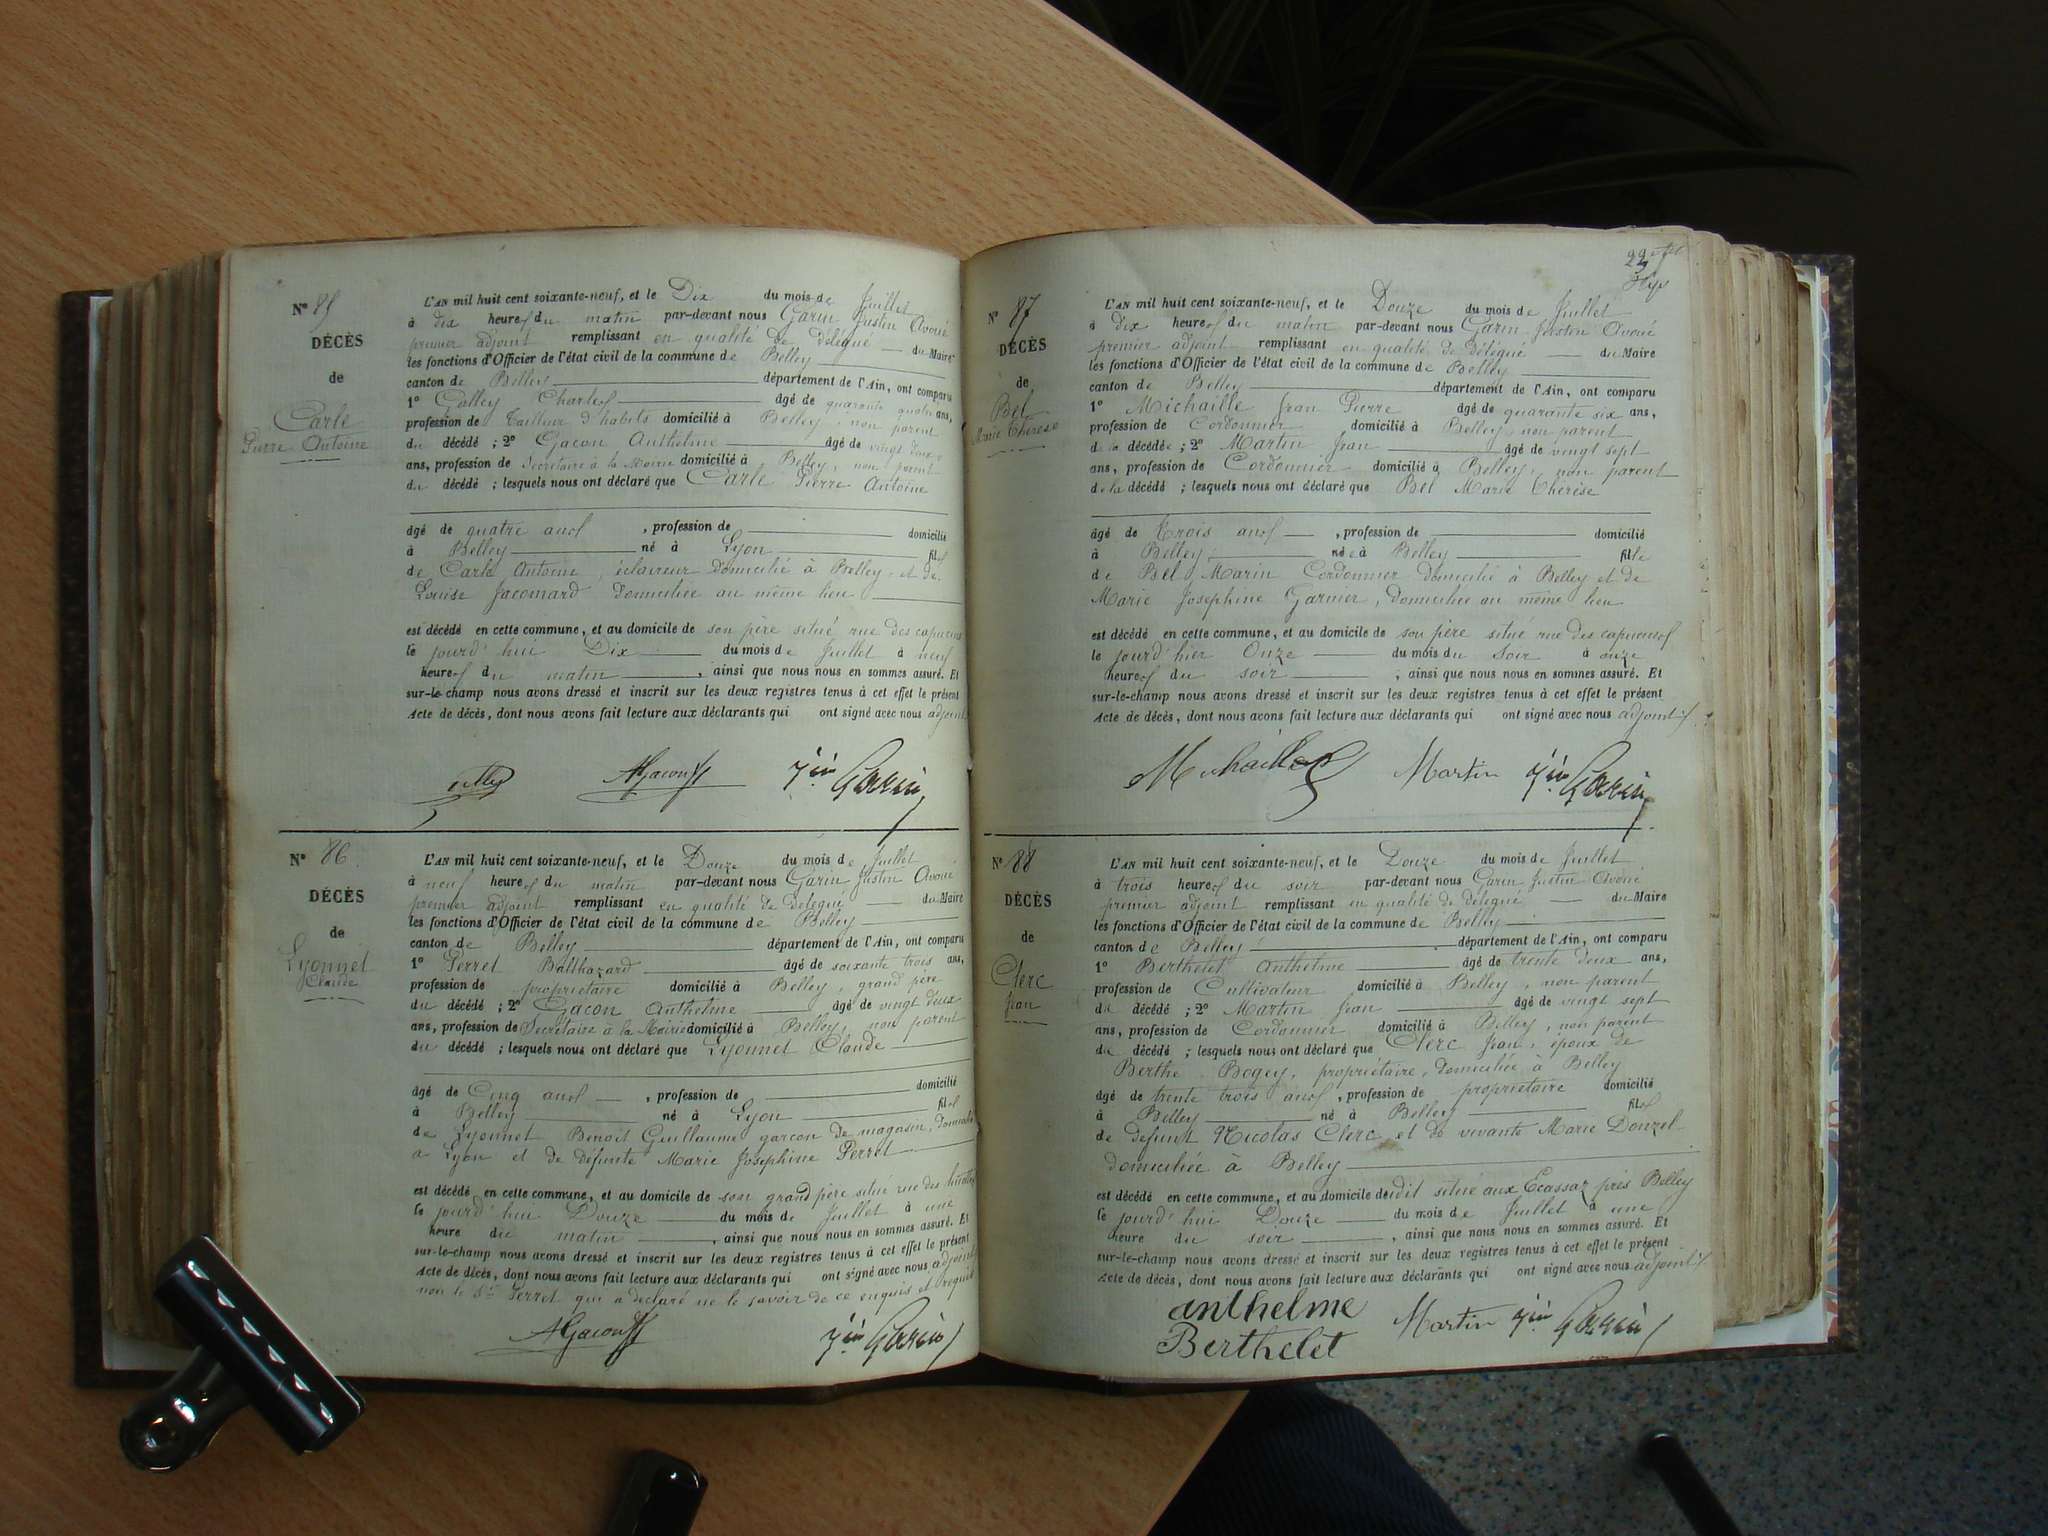 N° 85
DÉCÈS
de
Carle
Pierre Antoine
L'AN mil huit cent soixante-neuf, et le Dix du mois de Juillet
à dix heures du matin par-devant nous Garin Justin Avoué
premier adjoint remplissant en qualité de délégué du Maire
les fonctions d'Officier de l'état civil de la commune de Belley
canton de Belley département de l'Ain, ont comparu
1° Galley Charles âgé de quarante quatre ans,
profession de Tailleur d'habits domicilié à Belley, non parent
du décédé ; 2° Gacon Anthelme âgé de vingt deux
ans, profession de Secrétaire à la Mairie domicilié à Belley, non parent
du décédé ; lesquels nous ont déclaré que Carle Pierre Antoine
âgé de quatre ans , profession de domicilié
à Belley né à Lyon fils
de Carle Antoine, éclaireur domicilié à Belley et de
Louise Jacomard domiciliée au même lieu
est décédé en cette commune, et au domicile de son père situé rue des capucins
le jourd'hui Dix du mois de Juillet à neuf
heures du matin , ainsi que nous nous en sommes assuré. Et
sur-le-champ nous avons dressé et inscrit sur les deux registres tenus à cet effet le présent
Acte de décès, dont nous avons fait lecture aux déclarants qui ont signé avec nous adjoint
AGacon Jin Garin
N° 86
DÉCÈS
de
Lyonnet
Claude
L'AN mil huit cent soixante-neuf, et le Douze du mois de Juillet
à neuf heures du matin par-devant nous Garin Justin Avoué
premier adjoint remplissant en qualité de délégué du Maire
les fonctions d'Officier de l'état civil de la commune de Belley
canton de Belley département de l'Ain, ont comparu
1° Perret Balthazard âgé de soixante trois ans,
profession de propriétaire domicilié à Belley, grand père
du décédé ; 2° Gacon Anthelme âgé de vingt deux
ans, profession de Secrétaire à la Mairie domicilié à Belley, non parent
du décédé ; lesquels nous ont déclaré que Lyonnet Claude
âgé de Cinq ans , profession de domicilié
à Belley né à Lyon fils
de Lyonnet Benoit Guillaume garçon de magasin, domicilié
à Lyon et de défunte Marie Josephine Perret
est décédé en cette commune, et au domicile de son grand père situé rue des
le jourd'hui Douze du mois de Juillet à une
heure du matin , ainsi que nous nous en sommes assuré. Et
sur-le-champ nous avons dressé et inscrit sur les deux registres tenus à cet effet le présent
Acte de décès, dont nous avons fait lecture aux déclarants qui ont signé avec nous adjoint
non le Sr Perret qui a déclaré ne le savoir de ce enquis et requis
AGacon Jin Garin
22
N° 87
DÉCÈS
de
Bel
Marie Thérèse
L'AN mil huit cent soixante-neuf, et le Douze du mois de Juillet
à dix heures du matin par-devant nous Garin Justin Avoué
premier adjoint remplissant en qualité de délégué du Maire
les fonctions d'Officier de l'état civil de la commune de Belley
canton de Belley département de l'Ain, ont comparu
1° Michaille Jean Pierre âgé de quarante six ans,
profession de Cordonnier domicilié à Belley, non parent
de la décédée ; 2° Martin Jean âgé de vingt sept
ans, profession de Cordonnier domicilié à Belley, non parent
de la décédé ; lesquels nous ont déclaré que Bel Marie Thérèse
âgé de Trois ans , profession de domicilié
à Belley née à Belley fille
de Bel Marin Cordonnier domicilié à Belley et de
Marie Josephine Garnier, domiciliée au même lieu
est décédé en cette commune, et au domicile de son père situé rue des capucins
le jourd'hier Onze du mois du Soir à onze
heures du soir , ainsi que nous nous en sommes assuré. Et
sur-le-champ nous avons dressé et inscrit sur les deux registres tenus à cet effet le présent
Acte de décès, dont nous avons fait lecture aux déclarants qui ont signé avec nous adjoint
Michaille Martin Jin Garin
N° 88
DÉCÈS
de
Clerc
Jean
L'AN mil huit cent soixante-neuf, et le Douze du mois de Juillet
à trois heures du soir par-devant nous Garin Justin Avoué
premier adjoint remplissant en qualité de délégué du Maire
les fonctions d'Officier de l'état civil de la commune de Belley
canton de Belley département de l'Ain, ont comparu
1° Berthelet Anthelme âgé de trente deux ans,
profession de Cultivateur domicilié à Belley, non parent
du décédé ; 2° Martin Jean âgé de vingt sept
ans, profession de Cordonnier domicilié à Belley, non parent
du décédé ; lesquels nous ont déclaré que Clerc Jean, époux de
Berthe Bogey, propriétaire, domiciliée à Belley
âgé de trente trois ans , profession de propriétaire domicilié
à Belley né à Belley fils
de défunt Nicolas Clerc et de vivante Marie Douzel
domiciliée à Belley
est décédé en cette commune, et au domicile dudit situé aux Ecassaz près Belley
le jourd'hui Douze du mois de Juillet à une
heure du soir , ainsi que nous nous en sommes assuré. Et
sur-le-champ nous avons dressé et inscrit sur les deux registres tenus à cet effet le présent
Acte de décès, dont nous avons fait lecture aux déclarants qui ont signé avec nous adjoint
anthelme Martin Jin Garin
Berthelet